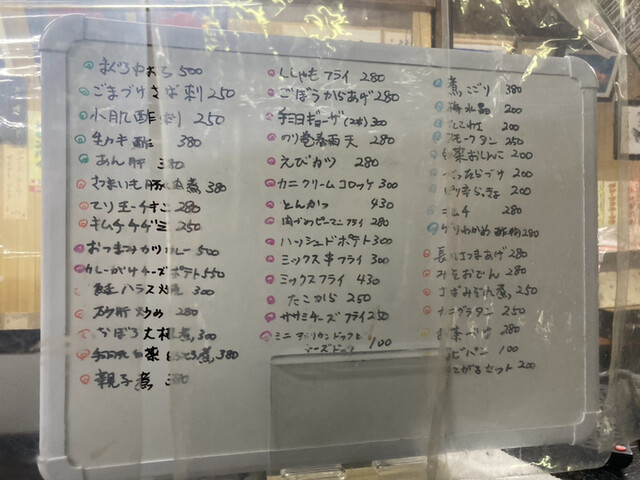 まぐろ 500
ごまづけさば刺 250
小肌酢 250
生カキ酢 380
あん肝 380
さつまいも 煮 380
280
キムチチヂミ 250
おつまみカツカレー 500
カレーがけチーズポテト 550
鮭ハラス 300
砂肝炒め 280
そぼろ大根煮 300
煮 380
親子煮 380
ししゃもフライ 280
ごぼうからあげ 280
手羽ギョーザ(2本) 300
のり竜春雨天 280
えびカツ 280
カニクリームコロッケ 300
とんかつ 430
肉づめピーマンフライ 280
ハッシュドポテト 300
ミックス串フライ 300
ミックスフライ 430
たこから 250
ササミチーズフライ 250
ミニアメリカンドックと
チーズドック 100
煮こごり 380
梅水晶 200
たこわさ 200
スモークタン 250
白菜おしんこ 200
べったらづけ 200
ピリ辛らっきょ 200
キムチ 280
グリわかめ酢物 280
長いもつまあげ 280
みそおでん 280
さばみぞれ煮 250
グラタン 250
お茶づけ 280
パン 100
セット 200